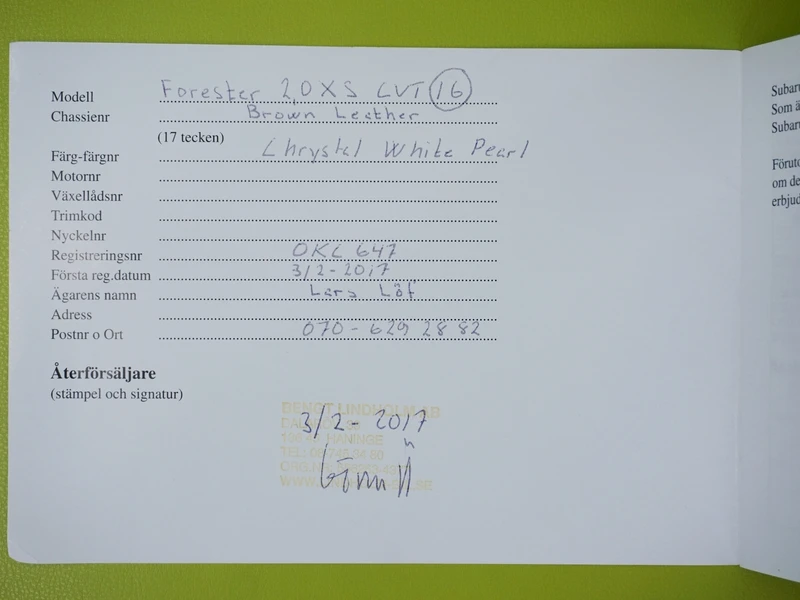 Modell Forester 2,0XS CVT 16
Chassienr Brown Leather
(17 tecken)
Färg-färgnr Chrystal White Pearl
Motornr
Växellådsnr
Trimkod
Nyckelnr
Registreringsnr OKL 647
Första reg.datum 3/2-2017
Ägarens namn Lars Löf
Adress
Postnr o Ort 070-629 28 82
Återförsäljare
(stämpel och signatur)
BENGT LINDHOLM AB
3/2-2017
HANINGE
TEL:
Subaru
Som ä
Subaru
Föruto
om de
erbjud